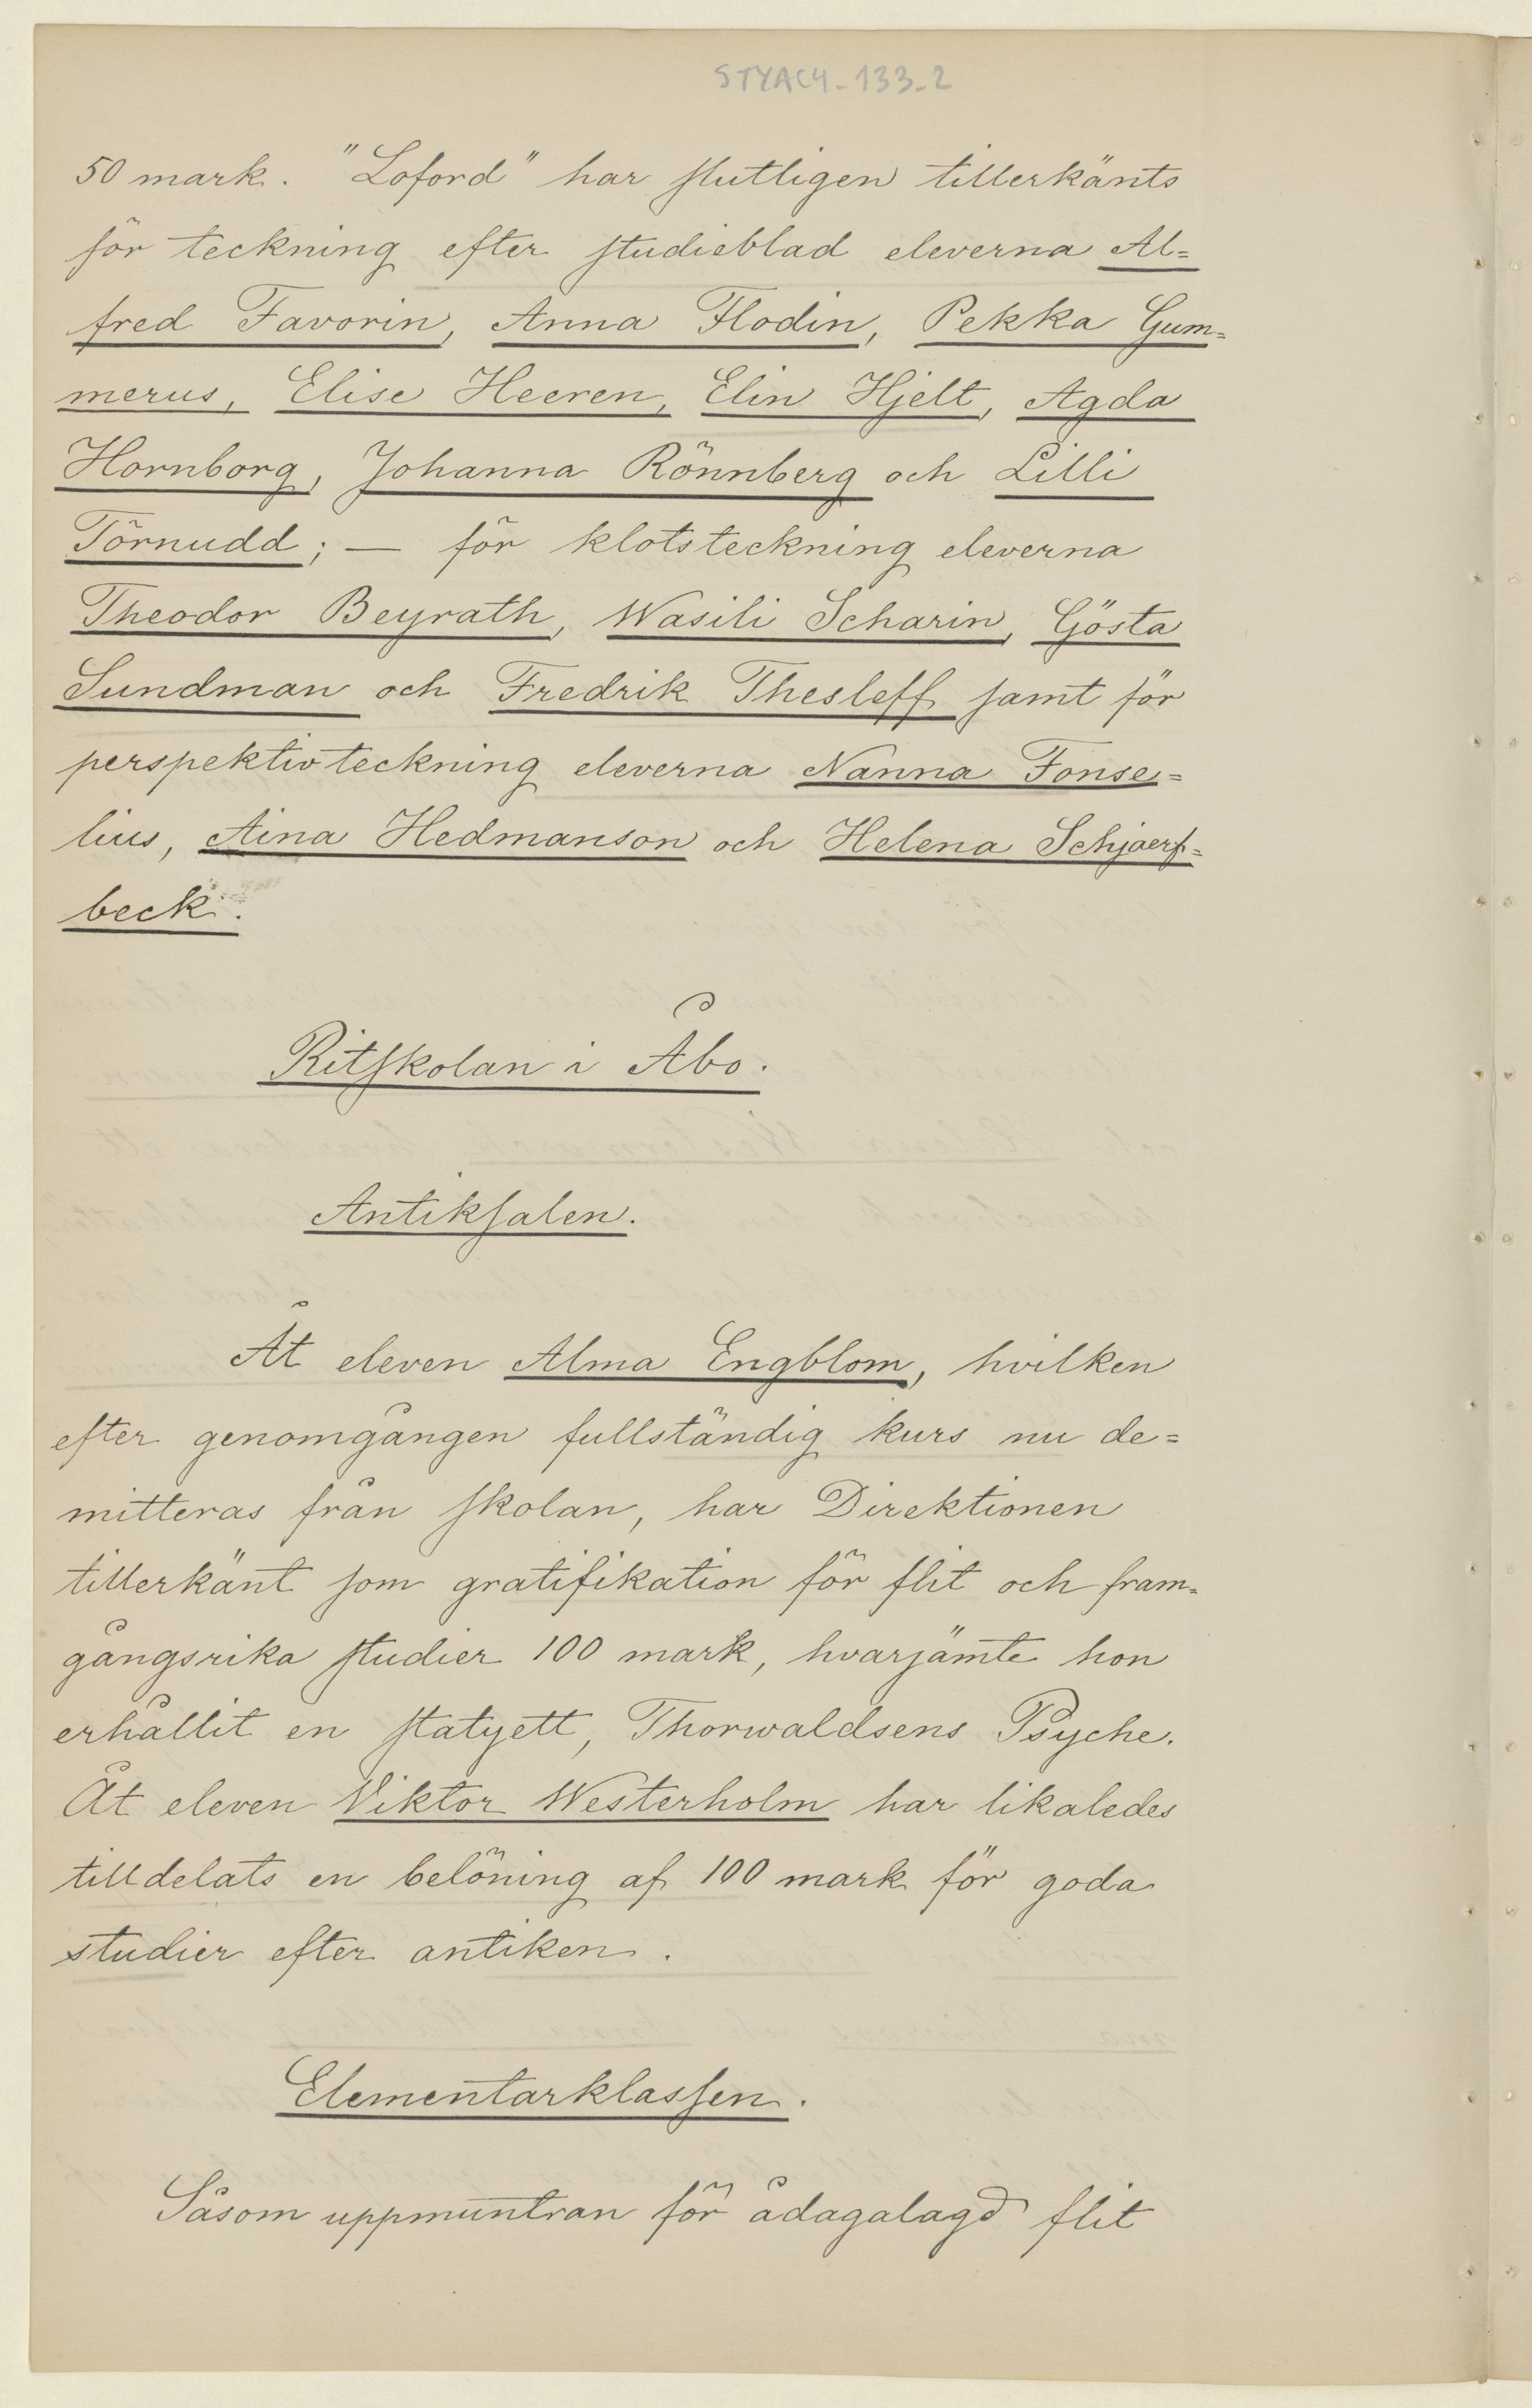 STYAC4-133-2
50 mark. "Loford" har slutligen tillerkänts
för teckning efter studieblad eleverna Al=
fred Favorin, Anna Flodin, Pekka Gum=
merus, Elise Heeren, Elin Hjelt, Agda
Hornborg, Johanna Rönnberg och Lilli
Törnudd; — för klotsteckning eleverna
Theodor Beyrath, Wasili Scharin, Gösta
Sundman och Fredrik Thesleff samt för
perspektivteckning eleverna Nanna Fonse=
lius, Aina Hedmanson och Helena Schjaerf=
beck.
Ritskolan i Åbo.
Antiksalen.
Åt eleven Alma Engblom, hvilken
efter genomgången fullständig kurs nu de=
mitteras från skolan, har Direktionen
tillerkänt som gratifikation för flit och fram=
gångsrika studier 100 mark, hvarjämte hon
erhållit en statyett, Thorwaldsens Psyche.
Åt eleven Viktor Westerholm har likaledes
tilldelats en belöning af 100 mark för goda
studier efter antiken.
Elementarklassen.
Såsom uppmuntran för ådagalagd flit